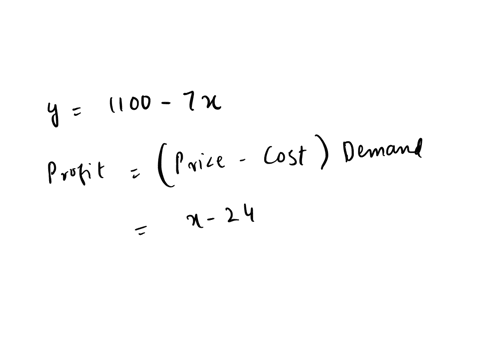 y = 1100 - 7x
Profit = (Price - Cost) Demand
= x - 24